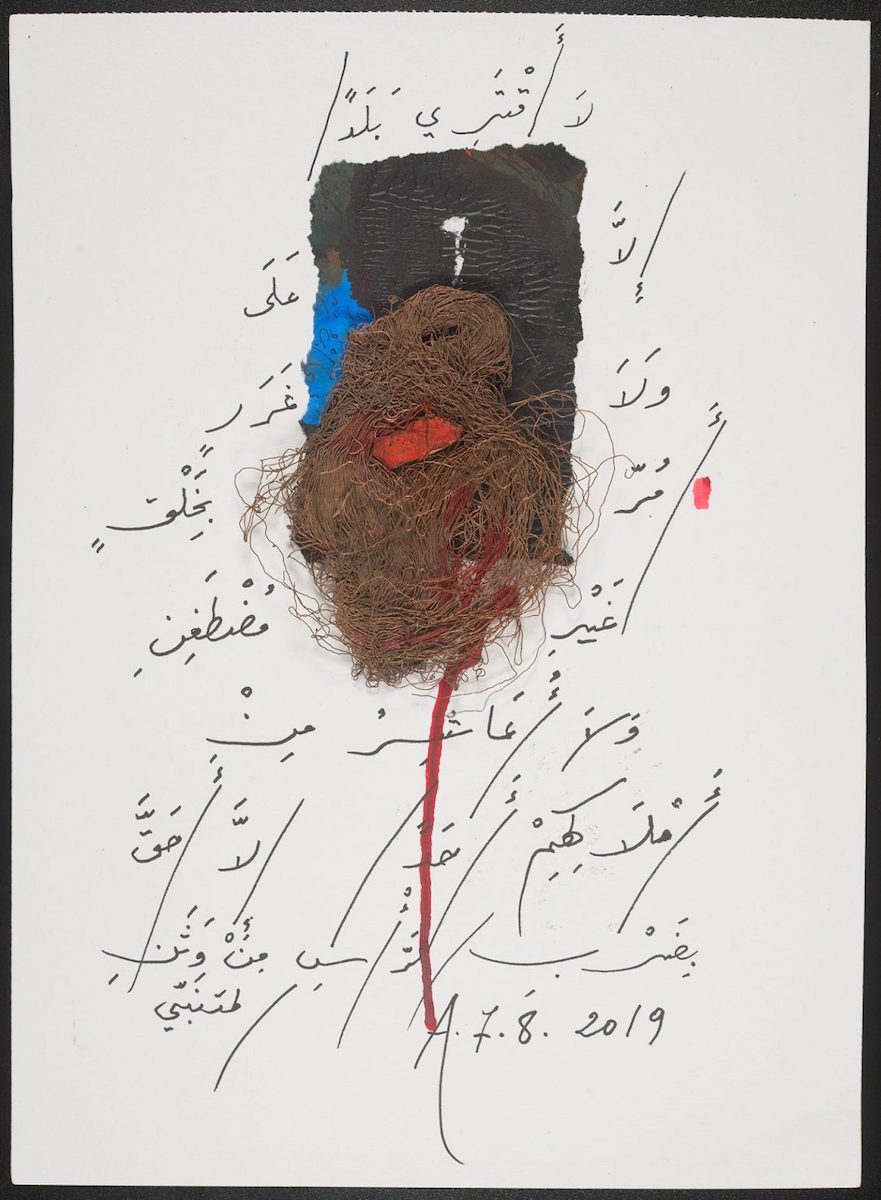 لَا أَقْتَرِي بَلَدًا
إِلَّا عَلَى
وَلَا غَرَرٍ
أَمُرُّ بِخَلْقٍ
غَيْرِ مُضْطَغِنِ
وَلَا أُعَاشِرُ مِنْ
أَمْلَاكِهِمْ أَحَدًا إِلَّا أَحَقَّ
بِضَرْبِ الرَّأْسِ مِنْ وَثَنِ
المتَنَبّي
A. 7. 8. 2019